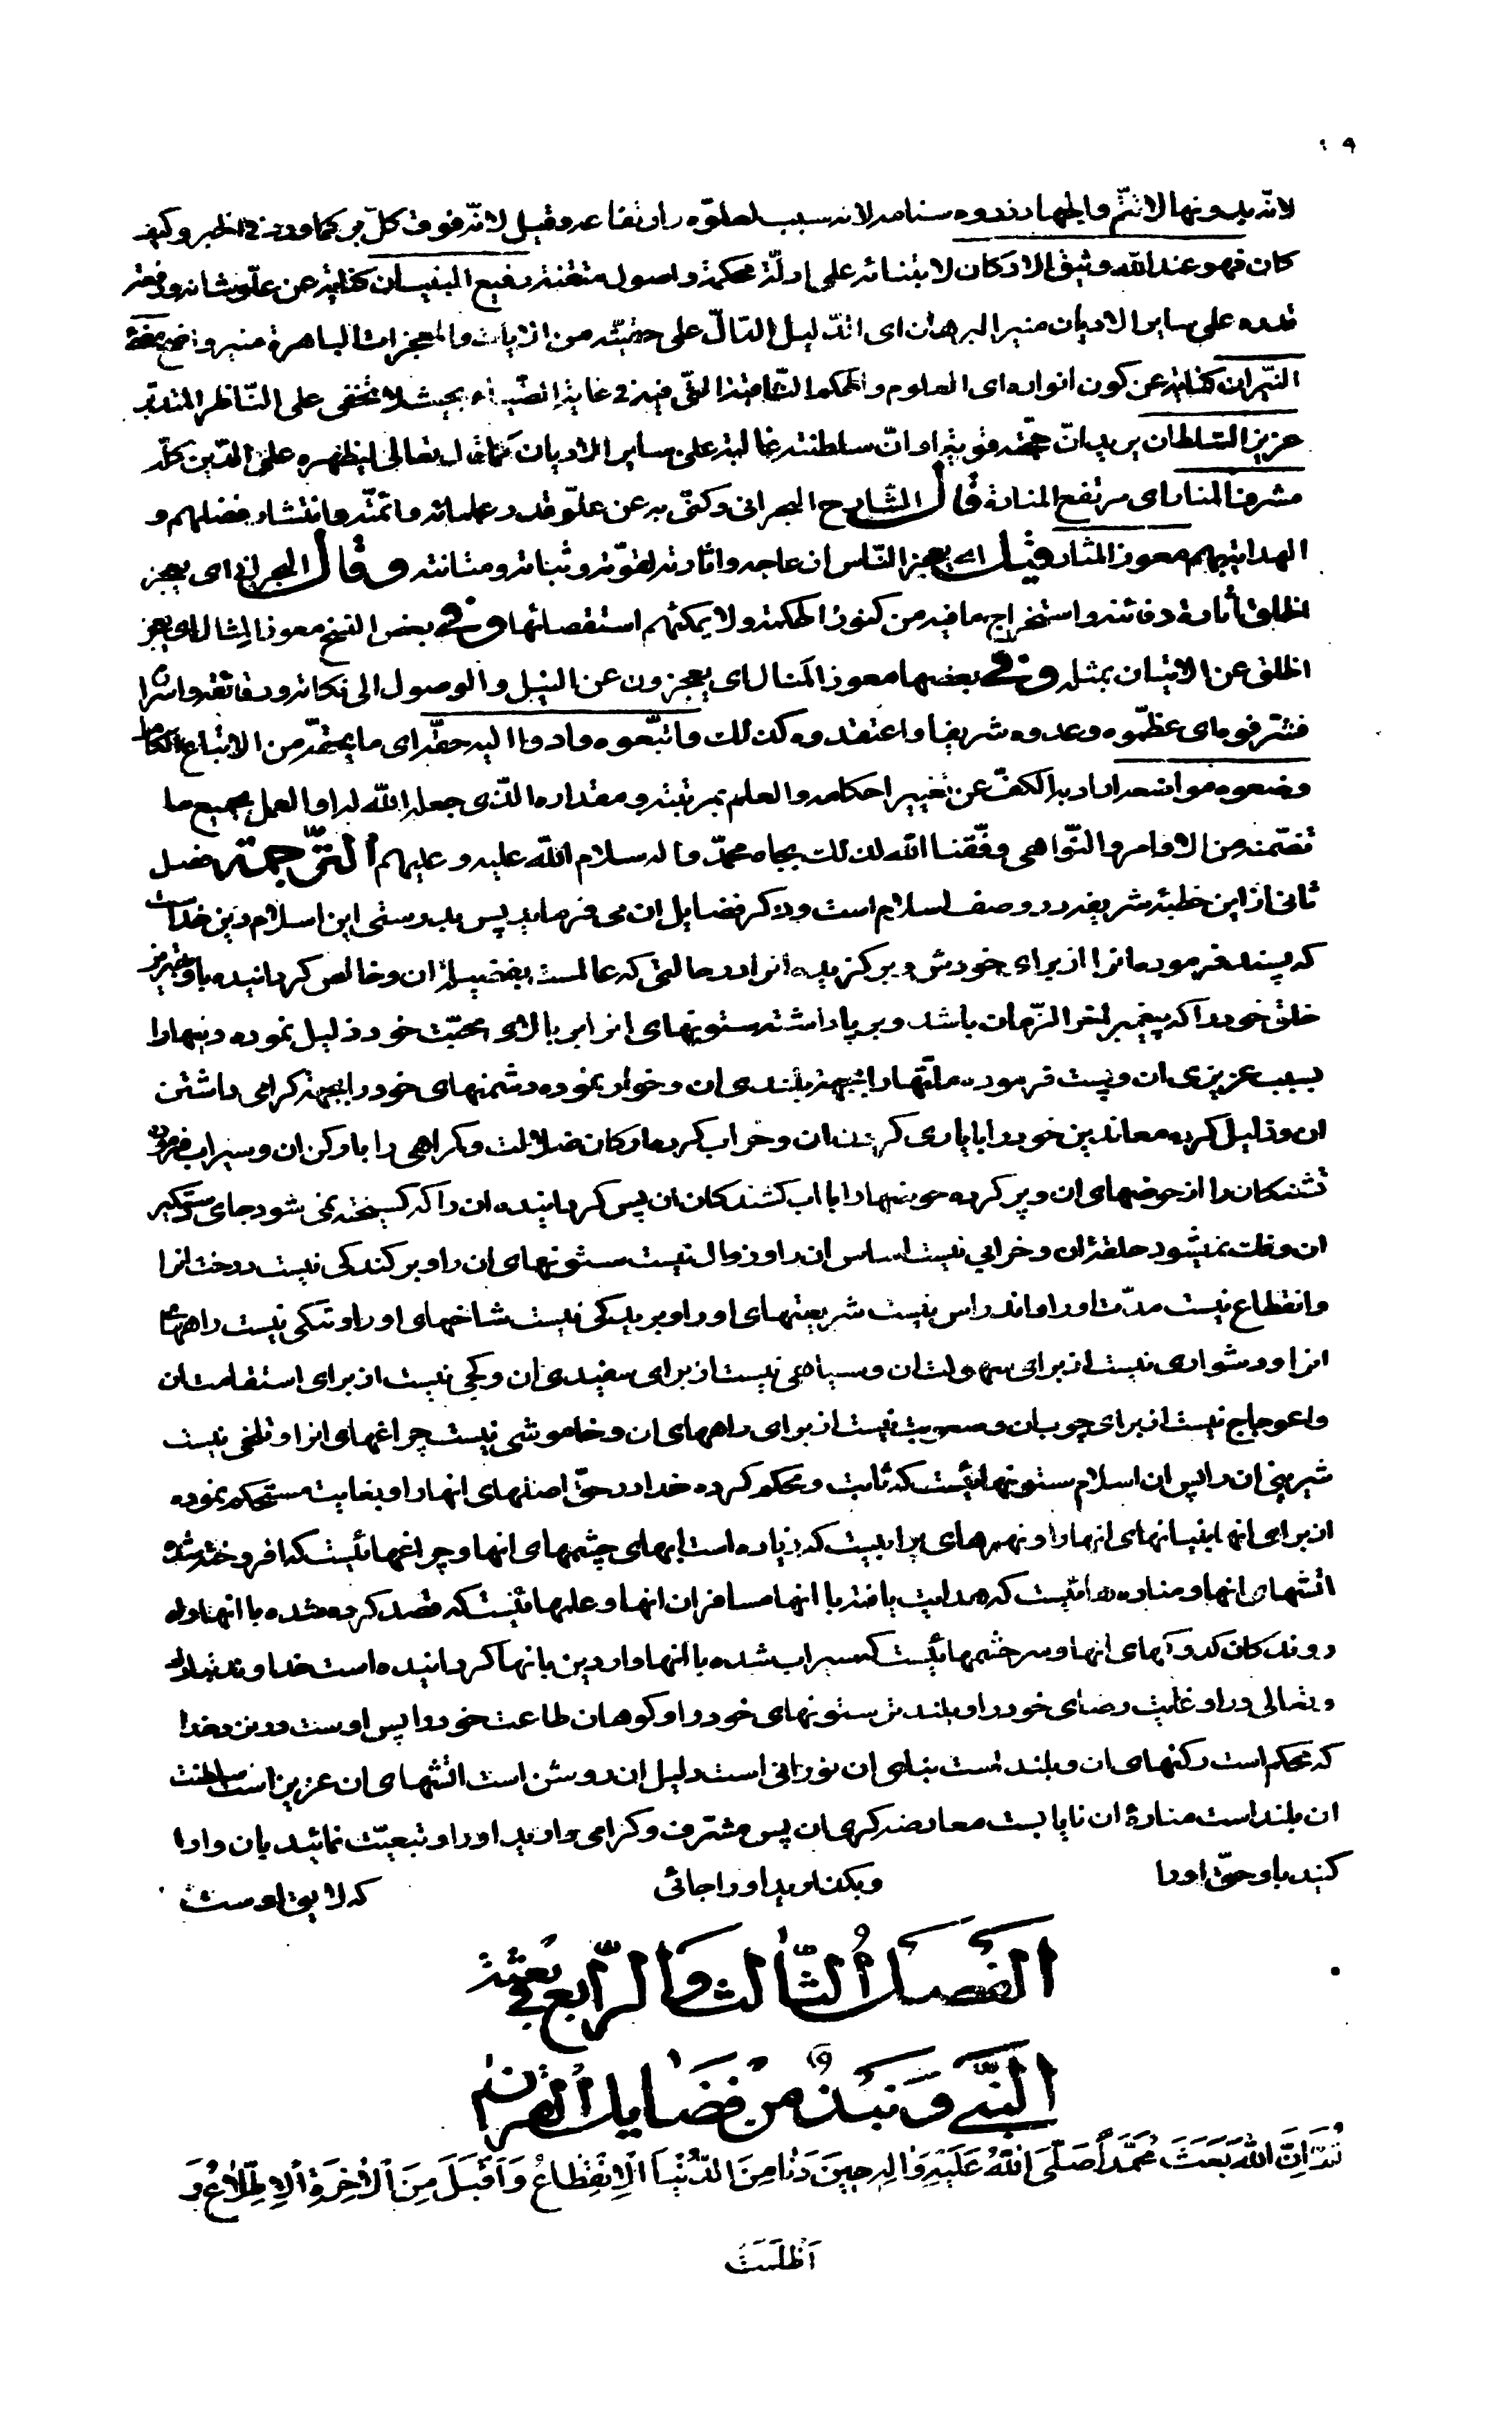 لانّه بدونها لا تتمّ والجهاد ذروه سنامه لانه سبب لعلوّه وارتفاعه وقيل لانّه فوق كلّ بر كما ورد في الخبر وكيف
كان فهو عند الله وثيق الاركان لابتنائه على ادلّة محكمة واصول متقنة رفيع البنيان كناية عن علوّ شانه ورفعة
قدره على ساير الاديان منير البرهان اى الدّليل الدّالّ على حقيّته من الايات والمعجزات الباهرة منير واضح مضئ
النّيران كناية عن كون انواره اى العلوم والحكم الثّاقبة الّتى فيه في غاية الضّياء بحيث لا تخفى على النّاظر المتدبّر
عزيز السّلطان يريد انّ حجّته قويّة او انّ سلطنته غالبة على ساير الاديان كما قال تعالى ليظهره على الدّين كلّه
مشرف المنار اى مرتفع المنارة قال الشّارح البحرانى وكنّى به عن علوّ قدر علمائه وائمّته وانتشار فضلهم و
الهداية بهم معوز المثار قيل اى يعجز النّاس ازعاجه واثارته لقوّته وثباته ومتانته وقال البحرانى اى يعجز
الخلق اثارة دفائنه واستخراج ما فيه من كنوز الحكمة ولا يمكنهم استقصائها وفي بعض النسخ معوز المثال اى يعجز
الخلق عن الاتيان بمثله وفي بعضها معوز المنال اى يعجزون عن النيل والوصول الى نكاته ودقائقه واسراره
فشرّفوه اى عظّموه وعدوه شريفا واعتقدوه كذلك واتبّعوه وادوا اليه حقّه اى ما يحقّه من الاتباع الكامل
وضعوه مواضعه اراد به الكفّ عن تغيير احكامه والعلم بمرتبته ومقداره الّذى جعله الله له او العمل بجميع ما
تضمّنه من الاوامر والنّواهى وفّقنا الله لذلك بجاه محمّد واله سلام الله عليه وعليهم الترجمة فصل
ثانى از اين خطبه شريفه در وصف اسلام است وذكر فضايل ان مى فرمايد پس بدرستى اين اسلام دين خداست
كه پسند فرموده انرا از براى خودش وبرگزيده انرا در حالتى كه عالمست بفضيلت ان وخالص گردانيده باو بهترين
خلق خود را كه پيغمبر اخر الزّمان باشد وبر پا داشته ستونهاى انرا بر بالاى محبّت خود ذليل نموده دينها را
بسبب عزيزى ان وپست فرموده ملّتها را بجهة بلندى ان وخوار نموده دشمنهاى خود را بجهة گرامى داشتن
ان وذليل كرده معاندين خود را با يارى كردن ان وخراب كرده اركان ضلالت وگمراهى را با ركن ان وسيراب فرموده
تشنگان را از حوضهاى ان وپر كرده حوضها را با اب كشندگان ان پس گردانيده ان را كه گسيخته نمى شود جاى دستگير
ان وفك نميشود حلقهٔ ان وخرابى نيست اساس ان را وزوال نيست ستونهاى ان را وبركندگى نيست درخت انرا
وانقطاع نيست مدّت او را واندراس نيست شريعتهاى او را وبريدگى نيست شاخهاى او را وتنگى نيست راههاى
انرا ودشوارى نيست از براى سهولت ان وسياهى نيست از براى سفيدى ان وكجى نيست از براى استقامت ان
واعوجاج نيست از براى چوب ان وصعوبت نيست از براى راههاى ان وخاموشى نيست چراغهاى انرا وتلخى نيست
شيرينى ان را پس ان اسلام ستونهائيست كه ثابت ومحكم كرده خدا در حقّ اصلهاى انها را وبغايت مستحكم نموده
از براى انها بنيانهاى انها را ونهرهاى پر ابيست كه زياده است ابهاى چشمهاى انها وچراغهائيست كه افروخته شده
اتشهاى انها ومناره هائيست كه هدايت يافته با انها مسافران انها وعلمهائيست كه قصد كرده شده با انها راه
روندگان كدوكهاى انها وسرچشمهائيست كه سيراب شده با انها واردين بانها گردانيده است خداوند تبارك
وتعالى در او غايت رضاى خود را وبلندتر ستونهاى خود را وكوهان طاعت خود را پس اوست در نزد خدا
كه محكم است ركنهاى ان وبلند است بناى ان نورانى است دليل ان روشن است اتشهاى ان عزيز است سلطنت
ان بلند است منارهٔ ان ناياب است معارضه گرى ان پس مشرّف وگرامى داريد او را وتبعيّت نمائيد بان وادا
كنيد باو حقّ او را وبگذاريد او را جائى كه لايق اوست
الفصل الثّالث والرّابع في بعثة
النّبي ونبذ من فضايل القران
ثُمَّ اِنَّ اللهَ بَعَثَ مُحَمَّداً صَلَّى اللهُ عَلَيْهِ وَالِهِ حِينَ دَنٰا مِنَ الدُّنْيٰا الْاِنْقِطٰاعُ وَاَقْبَلَ مِنَ الْاٰخِرَةِ الْاِطِّلٰاعُ وَ
اَظْلَمَتْ